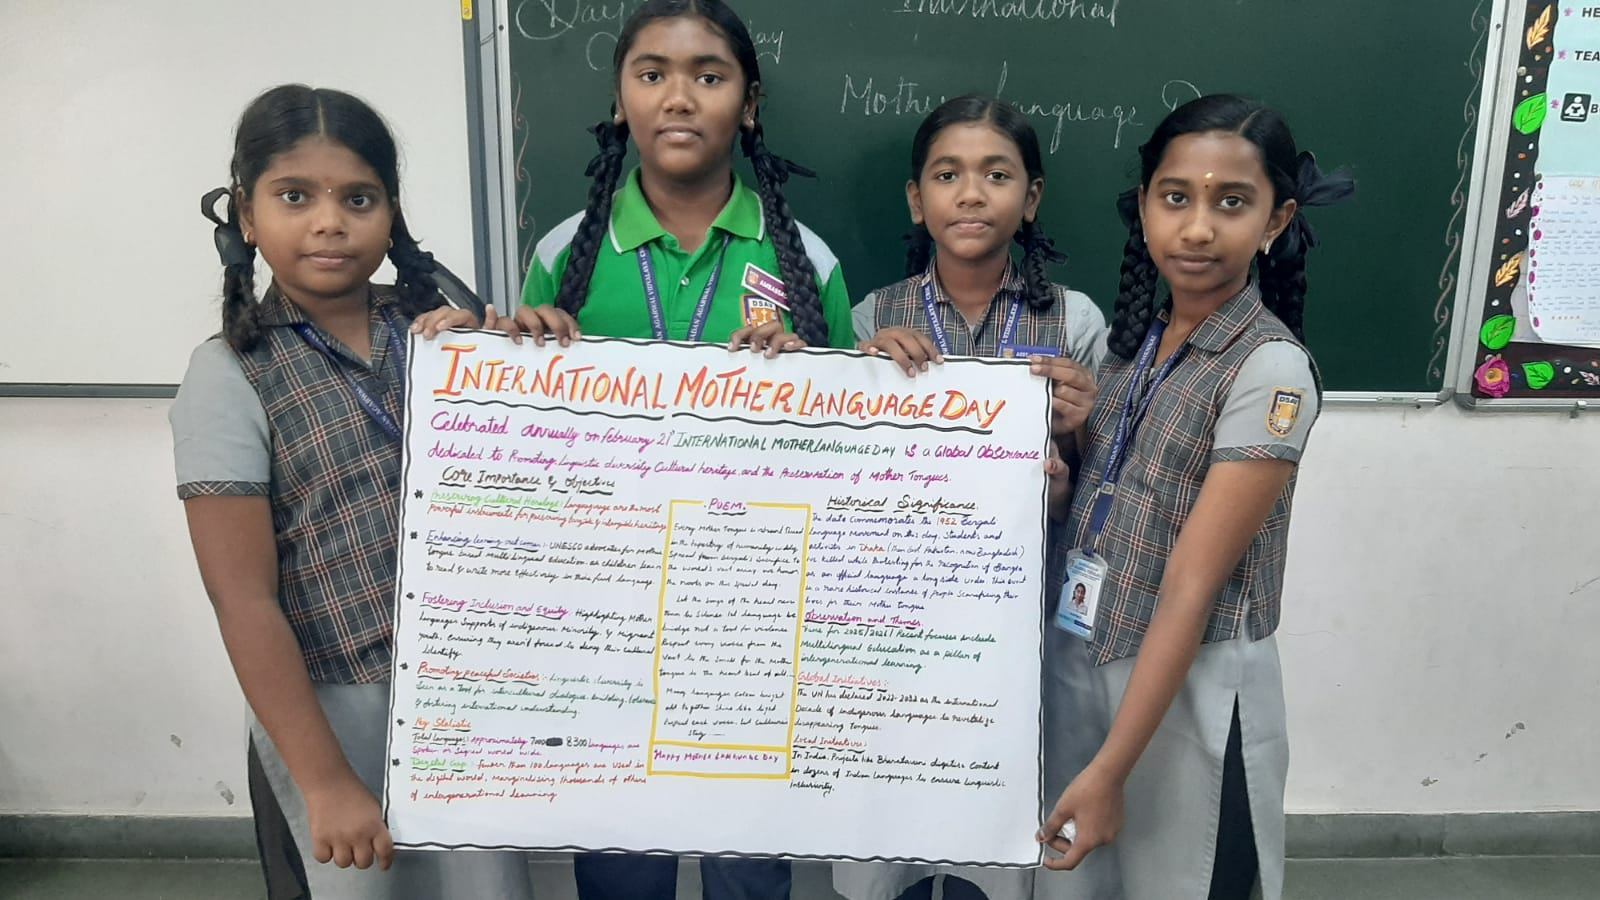 International
Mother Language D
HE
TEA
B
AGARWAL VIDYALAYA
AMBASSAD
DSAV
DSAV
INTERNATIONAL MOTHER LANGUAGE DAY
Celebrated annually on February 21st INTERNATIONAL MOTHER LANGUAGE DAY is a Global Observance
dedicated to Promoting Linguistic diversity Cultural heritage, and the Preservation of Mother Tongues.
Core Importance & Objectives
Preserving Cultural Heritage: Languages are the most
powerful instruments for preserving tangible & intangible heritage
Enhancing learning outcomes: UNESCO advocates for Mother
tongue based Multi Lingual education as children learn
to read & write more effectively in their first language.
Fostering Inclusion and Equity. Highlighting Mother
Languages Supports of indigenous Minority, & Migrant
youth. Ensuring they aren't forced to deny their cultural
Identify
Promoting peaceful Societies :- Linguistic diversity is
seen as a tool for intercultural dialogue building, tolerance
& fostering international understanding.
Key Statistic
Total Languages: Approximately 7000 8300 languages are
spoken or signed world wide.
Digital Gap : fewer than 100 languages are used in
the digital world, marginalising thousands of others
of intergenerational learning
POEM
Every Mother Tongue is a thread
in the tapestry of humanity widely
Spread from Bengal's Sacrifice to
the world's vast array we honor
the roots on this special day.
Let the Songs of the heart never
be Silence let language be
bridge not a tool for violence
Respect every voice from the
Vast to the Small for the Mother
tongue is the heart beat of all...
Many languages colour bright
all together Shine like light
respect each voice. Let cultures
Stay
Happy MOTHER LANGUAGE DAY
Historical Significance.
The date Commemorates the 1952 Bengali
Language Movement on this day, Students and
activists in Dhaka (then East Pakistan, now Bangladesh)
were killed while Protesting for the recognition of Bangla
as an official language along side Urdu. This event
is a rare historical instance of people Sacrificing their
lives for their Mother tongue
Observation and Themes.
for 2025/2026/ Recent focuses include
Multilingual Education as a pillar of
intergenerational learning.
Global Initiatives :-
The UN has declared 2022-2032 as the International
Decade of indigenous languages to revitalize
disappearing tongues.
Local Initiatives :
In India, Projects like digitize Content
in dozens of Indian Languages to ensure Linguistic
Inclusivity.